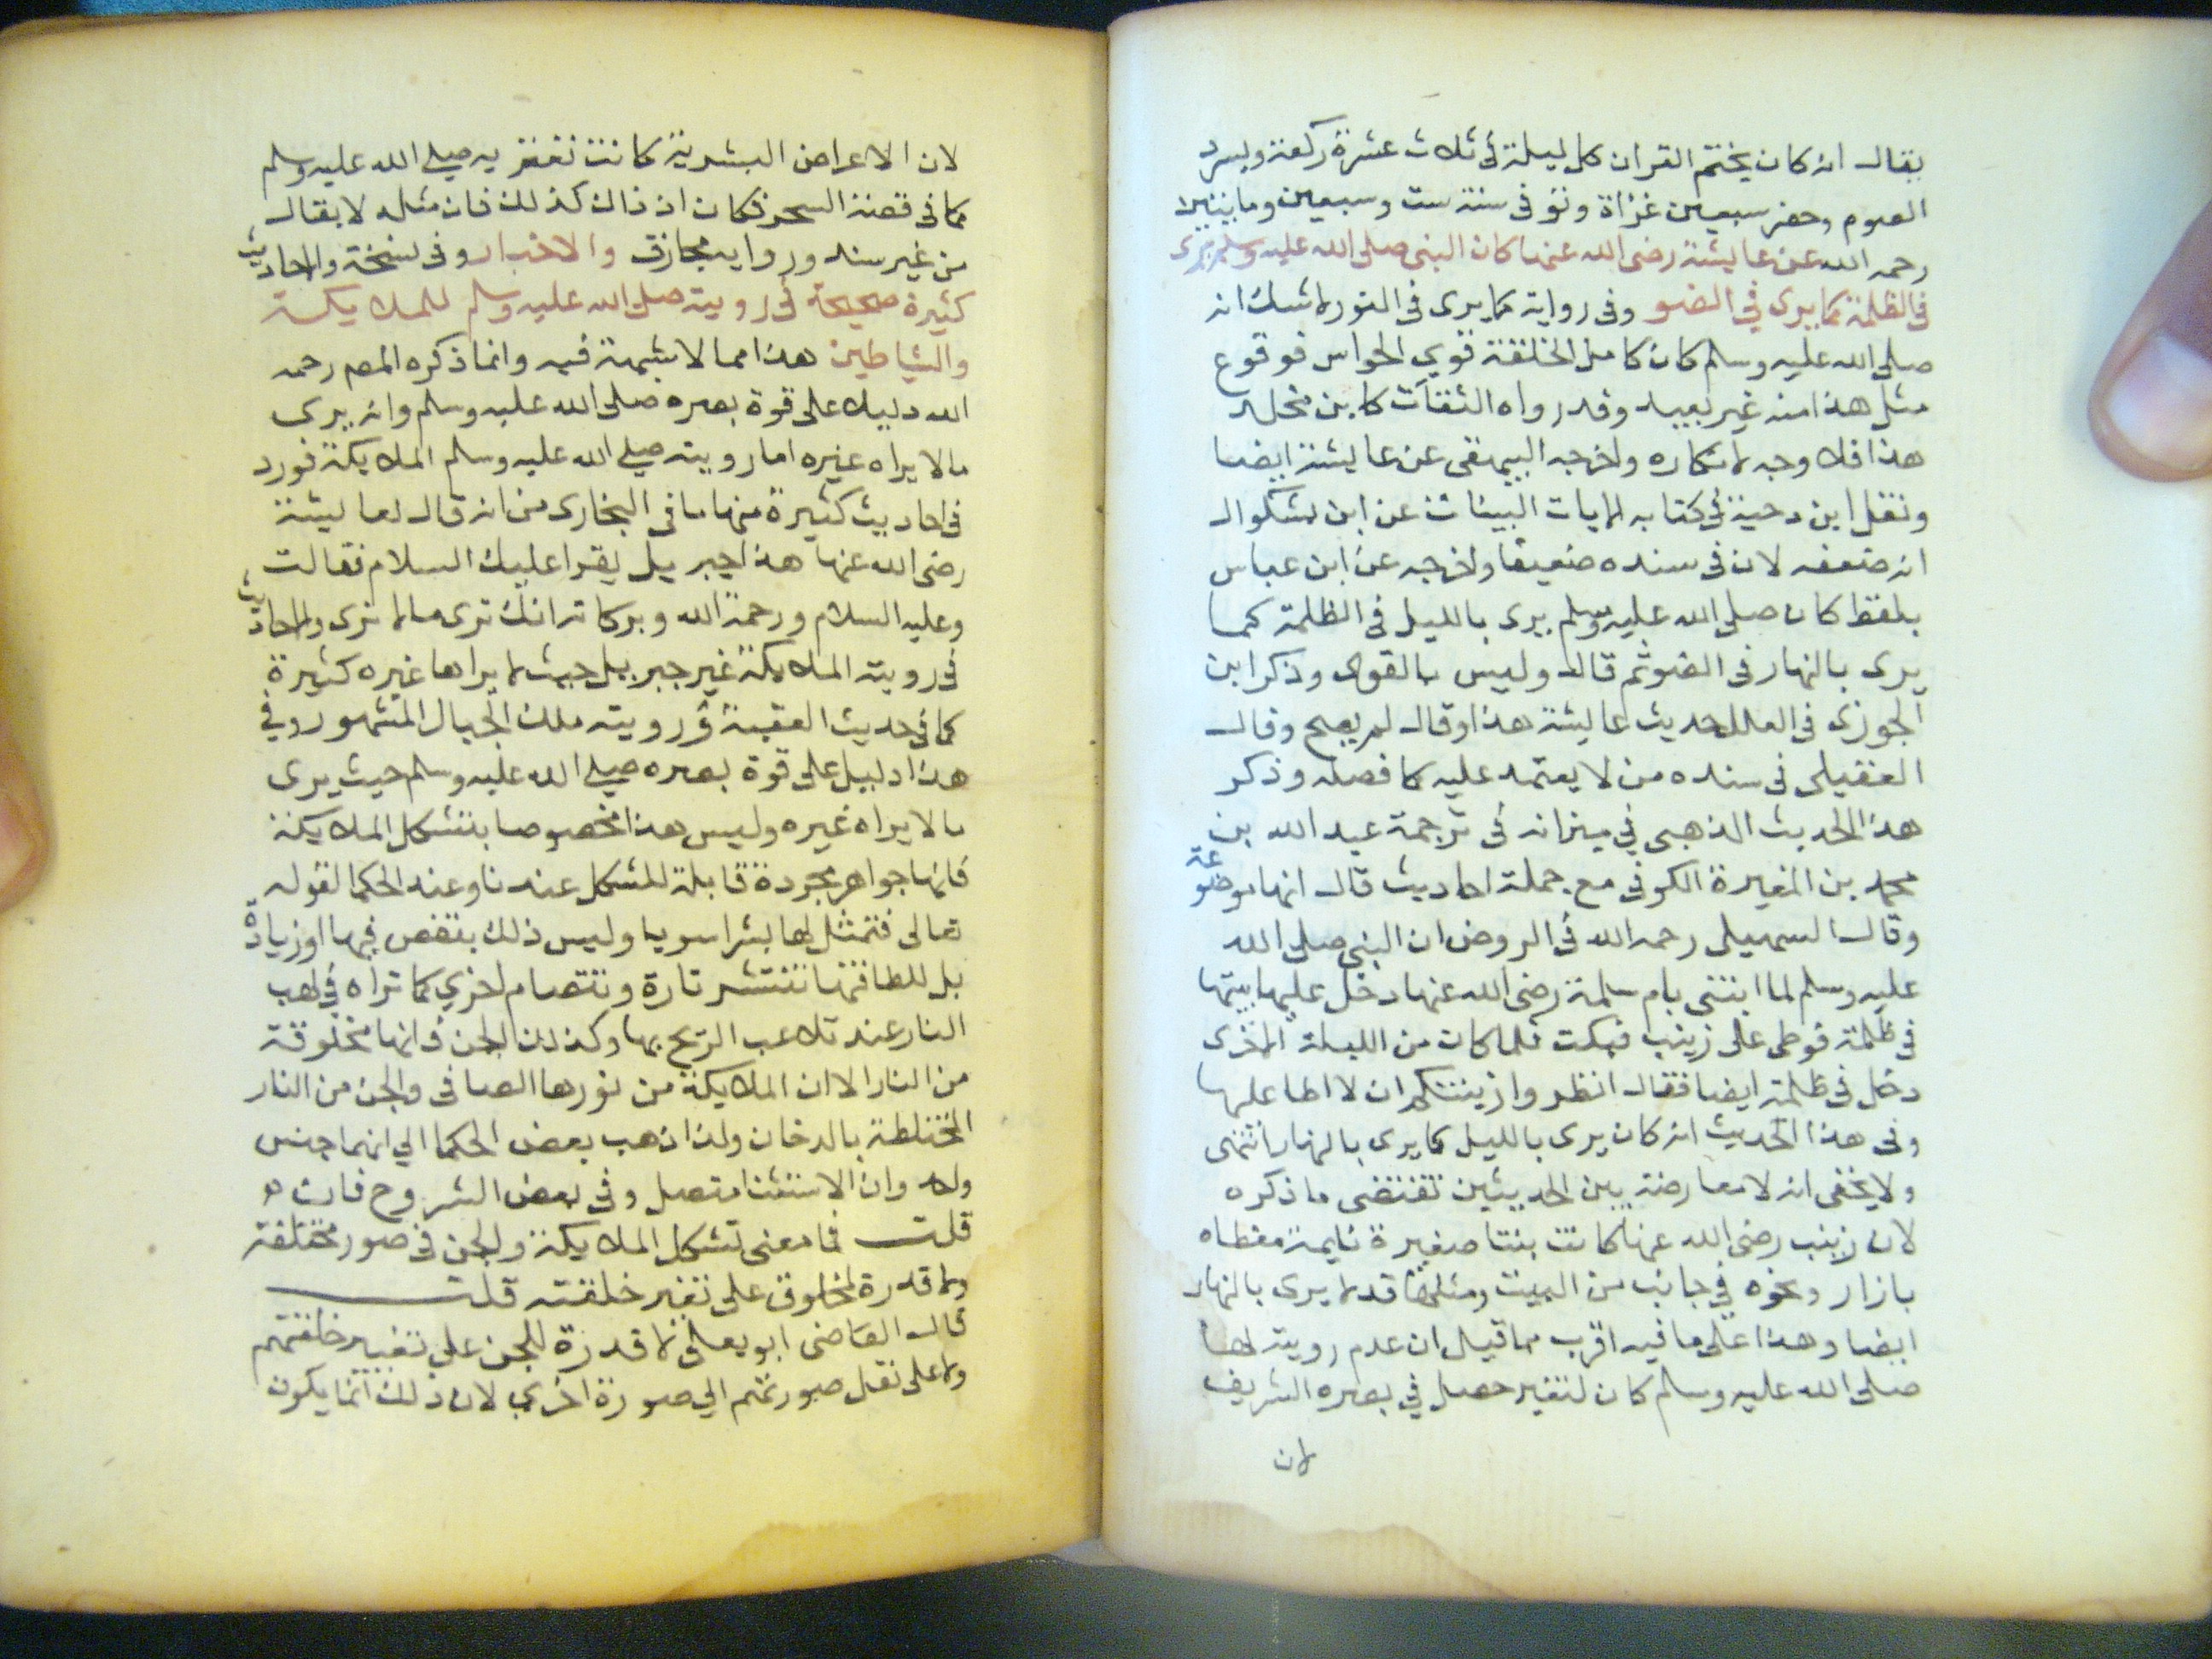 يقال انه كان يختم القران كل ليلة في ثلاث عشرة ركعة ويسرد
الصوم وحضر سبعين غزاة وتوفى سنة ست وسبعين ومايتين
رحمه الله عن عايشة رضى الله عنها كان النبى صلى الله عليه وسلم يرى
فى الظلمة كما يرى في الضو وفى رواية كما يرى فى النور لا شك انه
صلى الله عليه وسلم كان كامل الخلقة قوي الحواس فوقوع
مثل هذا منه غير بعيد وقد رواه الثقات كابن مخلد
هذا فلا وجه لانكاره واخرجه البيهقى عن عايشة ايضا
ونقل ابن دحية في كتابه الايات البينات عن ابن بشكوال
انه ضعفه لان فى سنده ضعيفا واخرجه عن ابن عباس
بلفظ كان صلى الله عليه وسلم يرى بالليل فى الظلمة كما
يرى بالنهار فى الضو ثم قال وليس بالقوى وذكر ابن
الجوزى فى العلل حديث عايشة هذا وقال لم يصح وقال
العقيلى فى سنده من لا يعتمد عليه كما فصله وذكر
هذا الحديث الذهبى في ميزانه فى ترجمة عبد الله بن
محمد بن المغيرة الكوفى مع جملة احاديث قال انها موضوعة
وقال السهيلى رحمه الله في الروض ان النبى صلى الله
عليه وسلم لما ابتنى بام سلمة رضى الله عنها دخل عليها بيتها
فى ظلمة فوطى على زينب فبكت فلما كان من الليلة الاخرى
دخل فى ظلمة ايضا فقال انظروا زينتكم ان لا اطا عليها
وفى هذا الحديث انه كان يرى بالليل كما يرى بالنهار انتهى
ولا يخفى انه لا معارضة بين الحديثين تقتضى ما ذكره
لان زينب رضى الله عنها كانت بنتا صغيرة نايمة مغطاه
بازار ونحوه في جانب من البيت ومثلها قد لا يرى بالنهار
ايضا وهذا على ما فيه اقرب مما قيل ان عدم رويته لها
صلى الله عليه وسلم كان لتغير حصل في بصره الشريف
لان
لان الاعراض البشرية كانت تعتريه صلى الله عليه وسلم
كما فى قصة السحر فكان اذ ذاك كذلك فان مثله لا يقال
من غير سند ورواية مجازف والاخبار وفى نسخة والاحاديث
كثيرة صحيحة في رويته صلى الله عليه وسلم للملايكة
والشياطين هذا مما لا شبهة فيه وانما ذكره المص رحمه
الله دليلا على قوة بصره صلى الله عليه وسلم وانه يرى
مالا يراه غيره اما رويته صلى الله عليه وسلم الملايكة فورد
فى احاديث كثيرة منها ما فى البخارى من انه قال لعايشة
رضى الله عنها هذا جبريل يقرا عليك السلام فقالت
وعليه السلام ورحمة الله وبركاته انك ترى مالا نرى والاحاديث
فى روية الملايكة غير جبريل حيث لا يراها غيره كثيرة
كما فى حديث العقبة ورويته ملك الجبال المشهور وفي
هذا دليل على قوة بصره صلى الله عليه وسلم حيث يرى
مالا يراه غيره وليس هذا مخصوصا بتشكل الملايكة
فانها جواهر مجردة قابلة للتشكل عندنا وعند الحكما لقوله
تعالى فتمثل لها بشرا سويا وليس ذلك بنقص فيها او زيادة
بل للطافتها تنتشر تارة وتنتضام اخري كما تراه في لهب
النار عند تلاعب الريح بها وكذلك الجن فانها مخلوقة
من النار الا ان الملايكة من نورها الصافى والجن من النار
المختلطة بالدخان ولذا ذهب بعض الحكما الي انهما جنس
واحد وان الاستثنا متصل وفى بعض الشروح فان
قلت فما معنى تشكل الملايكة والجن فى صور مختلفة
ولا قدرة لمخلوق على تغير خلقته قلت
قال القاضى ابو يعلى لا قدرة للجن على تغيير خلقتهم
ولا على نقل صورتهم الي صورة اخرى لان ذلك انما يكون